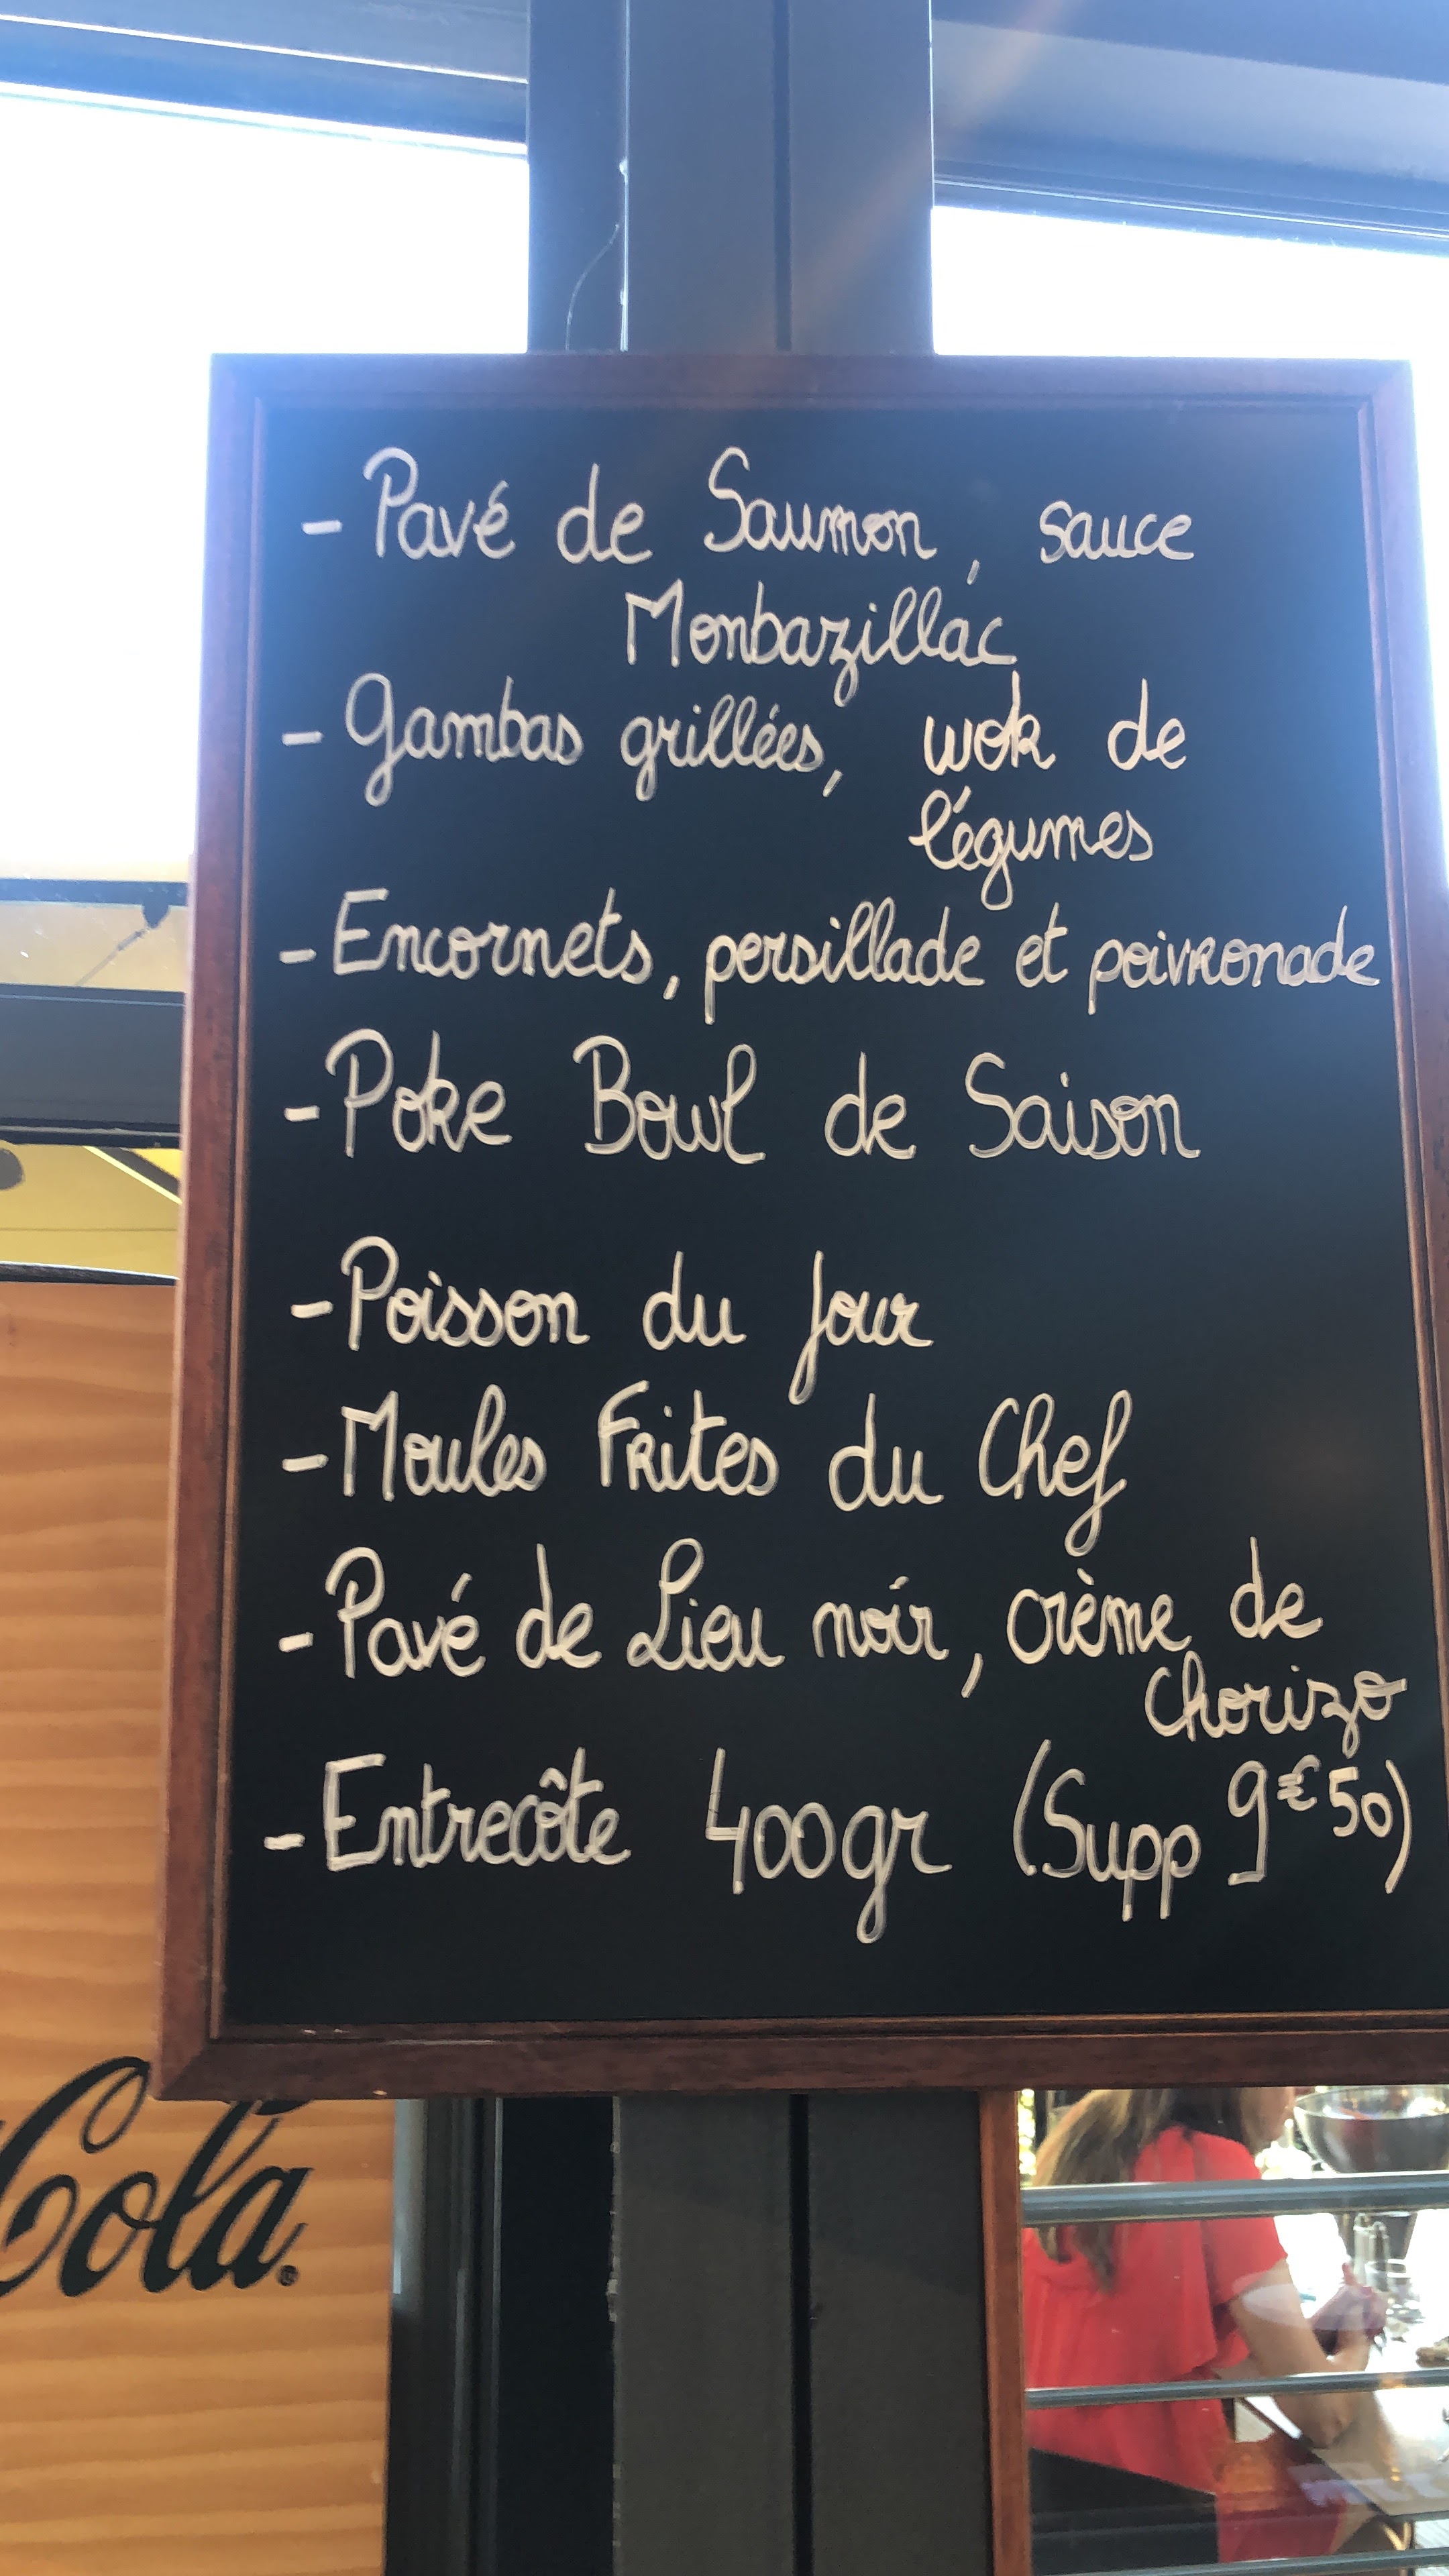 - Pavé de Saumon, sauce
Monbazillac
- Gambas grillées, wok de
légumes
- Encornets, persillade et poivronade
- Poke Bowl de Saison
- Poisson du jour
- Moules Frites du Chef
- Pavé de Lieu noir, crème de
Chorizo
- Entrecôte 400gr (Supp 9€50)
Cola